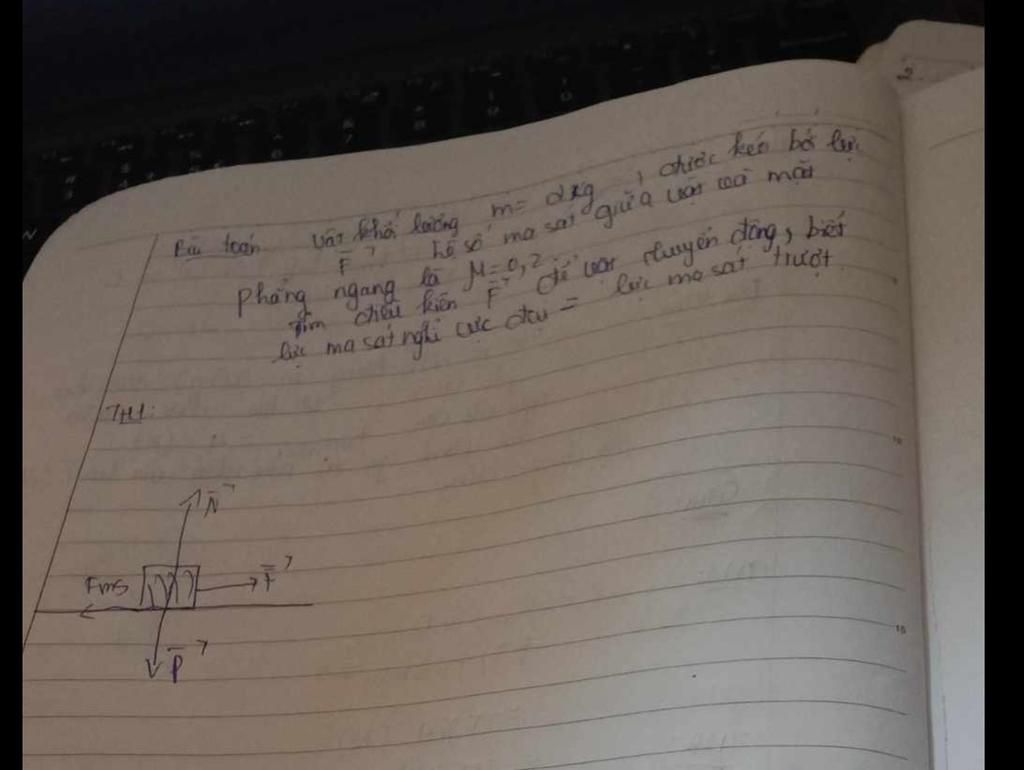 Bài toán Vật khối lượng m= 2kg, được kéo bở lực
F→ hệ số ma sát giữa vật và mặt
phẳng ngang là μ=0,2
Tìm điều kiện F→ để vật chuyển động, biết
lực ma sát nghỉ cực đại = lực ma sát trượt
TH1:
N→
Fms F→
P→
2
10
15